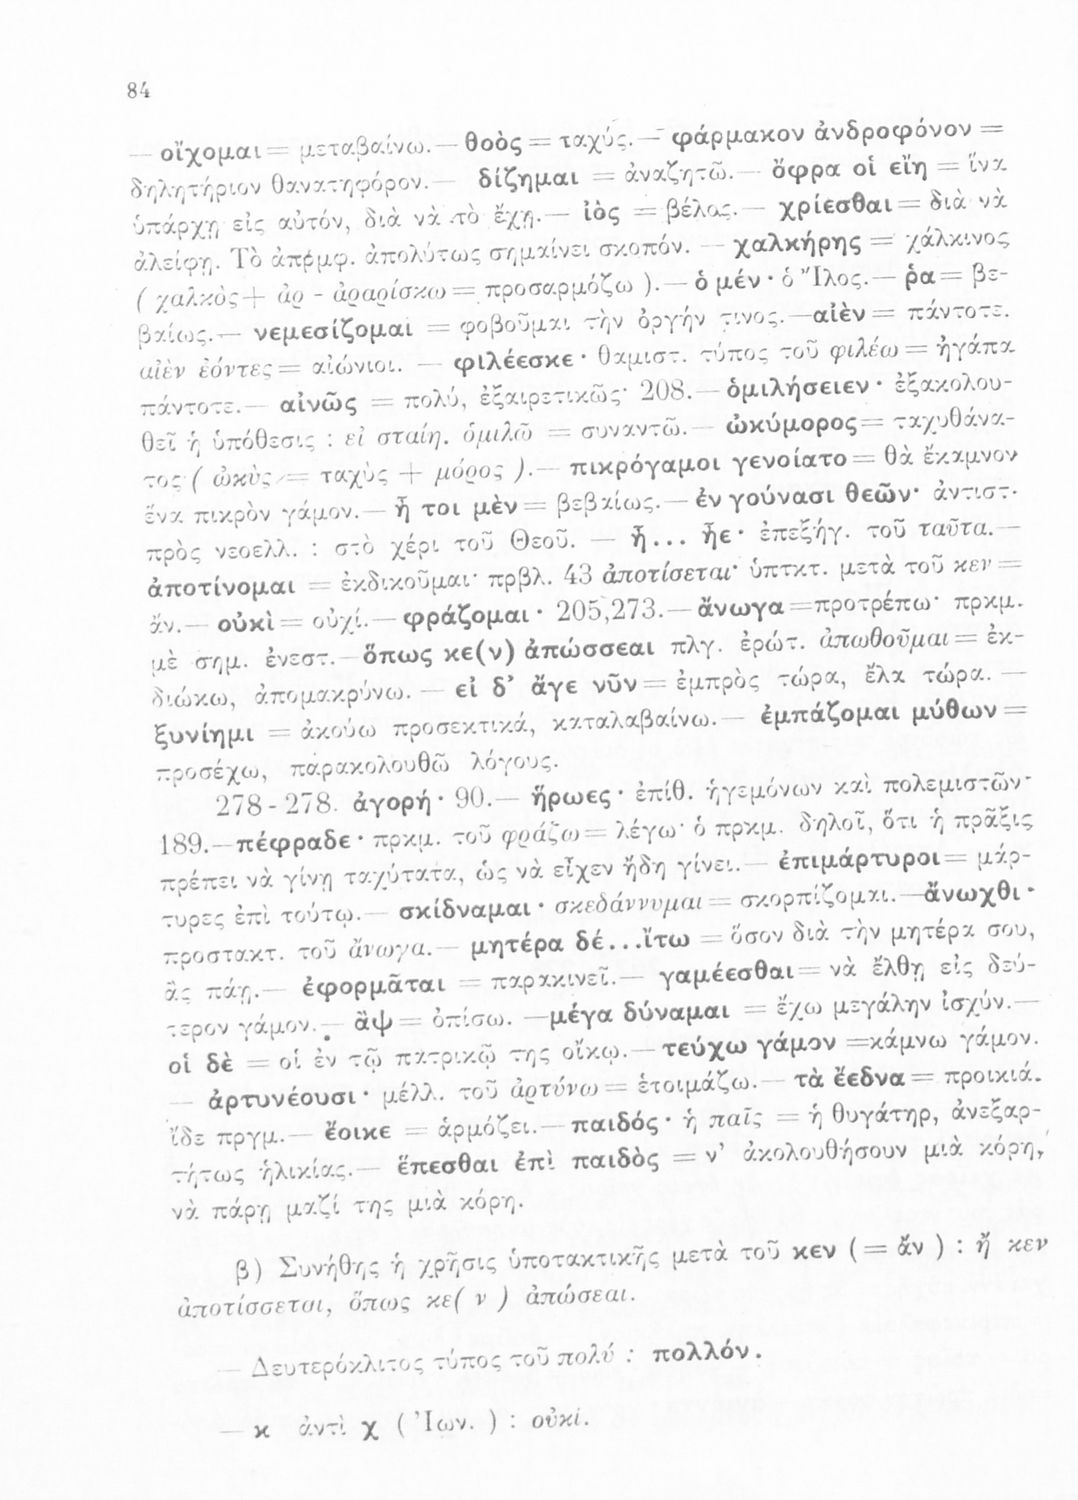 84
— οἴχομαι = μεταβαίνω. — θοὸς = ταχύς. — φάρμακον ἀνδροφόνον =
δηλητήριον θανατηφόρον. — δίζημαι = ἀναζητῶ. — ὄφρα οἱ εἴη = ἵνα
ὑπάρχῃ εἰς αὐτόν, διὰ νὰ τὸ ἔχῃ. — ἰὸς = βέλος. — χρίεσθαι = διὰ νὰ
ἀλείφῃ. Τὸ ἀπρμφ. ἀπολύτως σημαίνει σκοπόν. — χαλκήρης = χάλκινος
( χαλκὸς + ἀρ - ἀραρίσκω = προσαρμόζω ). — ὁ μέν · ὁ Ἴλος. — ῥα = βε-
βαίως. — νεμεσίζομαι = φοβοῦμαι τὴν ὀργήν τινος. — αἰὲν = πάντοτε.
αἰὲν ἐόντες = αἰώνιοι. — φιλέεσκε · θαμιστ. τύπος τοῦ φιλέω = ἠγάπα
πάντοτε. — αἰνῶς = πολύ, ἐξαιρετικῶς· 208. — ὁμιλήσειεν · ἐξακολου-
θεῖ ἡ ὑπόθεσις : εἰ σταίη. ὁμιλῶ = συναντῶ. — ὠκύμορος = ταχυθάνα-
τος ( ὠκὺς = ταχὺς + μόρος ). — πικρόγαμοι γενοίατο = θὰ ἔκαμνον
ἕνα πικρὸν γάμον. — ἦ τοι μὲν = βεβαίως. — ἐν γούνασι θεῶν · ἀντιστ.
πρὸς νεοελλ. : στὸ χέρι τοῦ Θεοῦ. — ἤ... ἦε · ἐπεξήγ. τοῦ ταῦτα. —
ἀποτίνομαι = ἐκδικοῦμαι· πρβλ. 43 ἀποτίσεται· ὑπτκτ. μετὰ τοῦ κεν =
ἄν. — οὐκὶ = οὐχί. — φράζομαι · 205,273. — ἄνωγα = προτρέπω· πρκμ.
μὲ σημ. ἐνεστ. — ὅπως κε(ν) ἀπώσσεαι πλγ. ἐρώτ. ἀπωθοῦμαι = ἐκ-
διώκω, ἀπομακρύνω. — εἰ δ' ἄγε νῦν = ἐμπρὸς τώρα, ἔλα τώρα. —
ξυνίημι = ἀκούω προσεκτικά, καταλαβαίνω. — ἐμπάζομαι μύθων =
προσέχω, παρακολουθῶ λόγους.
278 - 278. ἀγορή · 90. — ἥρωες · ἐπίθ. ἡγεμόνων καὶ πολεμιστῶν·
189. — πέφραδε · πρκμ. τοῦ φράζω = λέγω· ὁ πρκμ. δηλοῖ, ὅτι ἡ πρᾶξις
πρέπει νὰ γίνῃ ταχύτατα, ὡς νὰ εἶχεν ἤδη γίνει. — ἐπιμάρτυροι = μάρ-
τυρες ἐπὶ τούτῳ. — σκίδναμαι · σκεδάννυμαι = σκορπίζομαι. — ἄνωχθι ·
προστακτ. τοῦ ἄνωγα. — μητέρα δέ...ἴτω = ὅσον διὰ τὴν μητέρα σου,
ἂς πάῃ. — ἐφορμᾶται = παρακινεῖ. — γαμέεσθαι = νὰ ἔλθῃ εἰς δεύ-
τερον γάμον. — ἂψ = ὀπίσω. — μέγα δύναμαι = ἔχω μεγάλην ἰσχύν. —
οἱ δὲ = οἱ ἐν τῷ πατρικῷ της οἴκῳ. — τεύχω γάμον = κάμνω γάμον.
— ἀρτυνέουσι · μέλλ. τοῦ ἀρτύνω = ἑτοιμάζω. — τὰ ἔεδνα = προικιά.
ἴδε πργμ. — ἔοικε = ἁρμόζει. — παιδός · ἡ παῖς = ἡ θυγάτηρ, ἀνεξαρ-
τήτως ἡλικίας. — ἕπεσθαι ἐπὶ παιδὸς = ν' ἀκολουθήσουν μιὰ κόρη,
νὰ πάρῃ μαζί της μιὰ κόρη.
β) Συνήθης ἡ χρῆσις ὑποτακτικῆς μετὰ τοῦ κεν ( = ἄν ) : ἤ κεν
ἀποτίσσεται, ὅπως κε( ν ) ἀπώσεαι.
— Δευτερόκλιτος τύπος τοῦ πολύ : πολλόν.
— κ ἀντὶ χ ( Ἰων. ) : οὐκί.